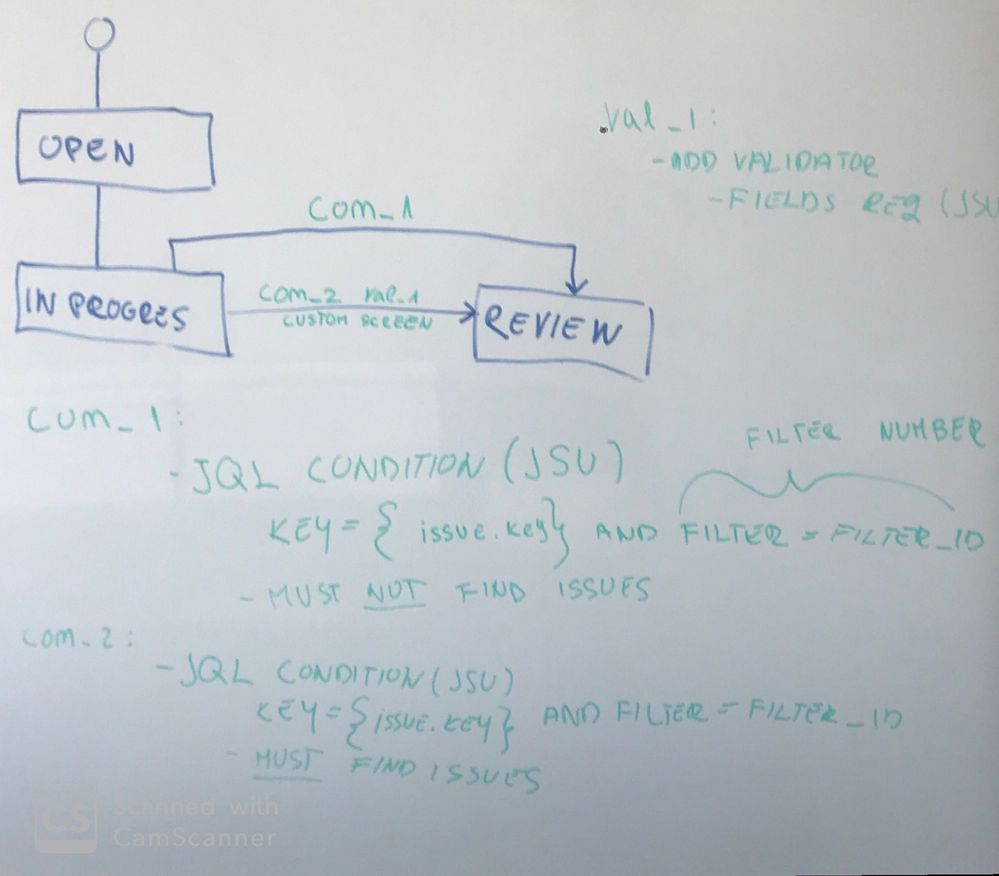 OPEN
.val_1:
- ADD VALIDATOR
- FIELDS REQ (JSU
COM_1
IN PROGRES
COM_2 val_1
CUSTOM SCREEN
REVIEW
COM_1:
FILTER NUMBER
- JQL CONDITION (JSU)
KEY = { issue.key} AND FILTER = FILTER_ID
- MUST NOT FIND ISSUES
com_2:
- JQL CONDITION (JSU)
KEY = {issue.key} AND FILTER = FILTER_ID
- MUST FIND ISSUES
CS Scanned with
CamScanner